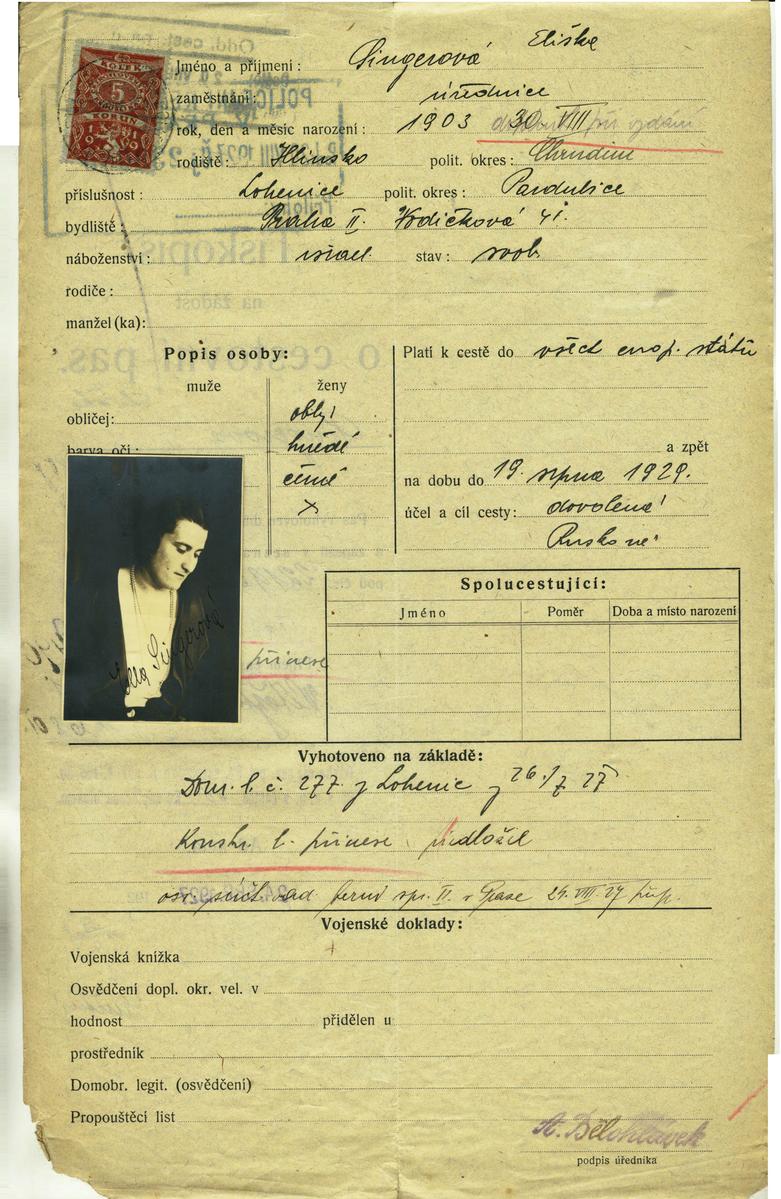 Jméno a příjmení: Singerová Eliška
zaměstnání: úřednice
rok, den a měsíc narození: 1903 30 VIII při vydání
rodiště: Hlinsko polit. okres: Chrudim
příslušnost: Lohenice polit. okres: Pardubice
bydliště: Praha II. Vodičková 41.
náboženství: israel. stav: svob.
rodiče:
manžel (ka):
Popis osoby:
muže ženy
obličej: oblý
barva očí: hnědé
černé
x
Platí k cestě do všech evrop. států
a zpět
na dobu do 19. srpna 1929.
účel a cíl cesty: dovolená
Spolucestující:
Jméno Poměr Doba a místo narození
Ella Singerová
přinese
Vyhotoveno na základě:
Dom. l. č. 277 z Lohenic z 26/7 27
Konskr. l. přinese předložil
24. VIII. 27
Vojenské doklady:
Vojenská knížka
Osvědčení dopl. okr. vel. v
hodnost přidělen u
prostředník
Domobr. legit. (osvědčení)
Propouštěcí list
A. Bělohlávek
podpis úředníka
KOLEK
5
KORUN
1919